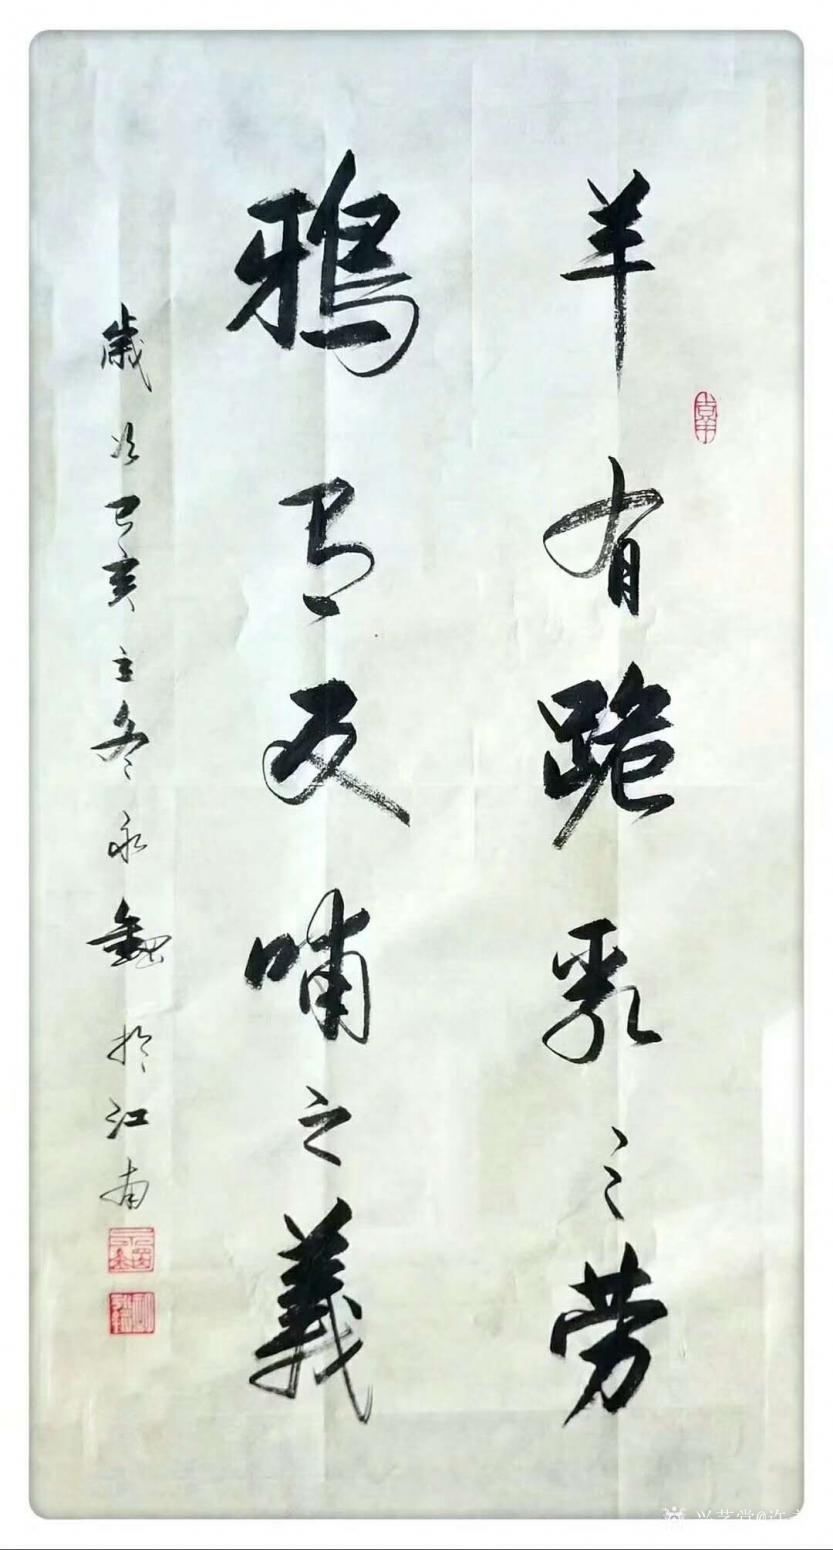 羊有跪乳之劳
鴉有反哺之義
歲次己亥立冬永鑫於江南